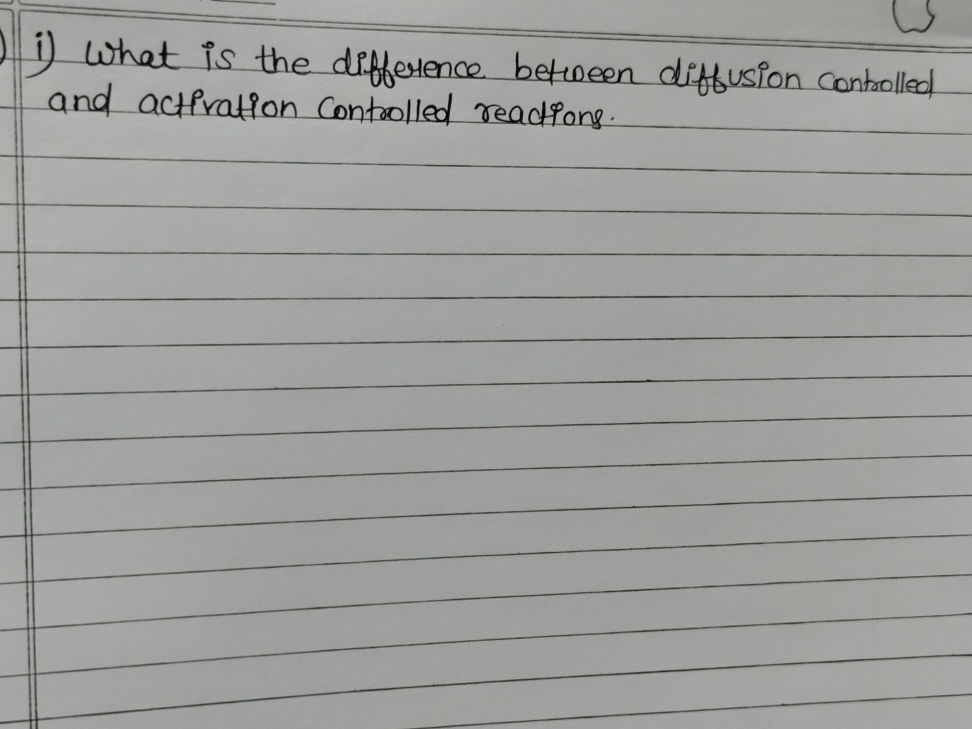 i) What is the difference between diffusion controlled
and activation controlled reactions.